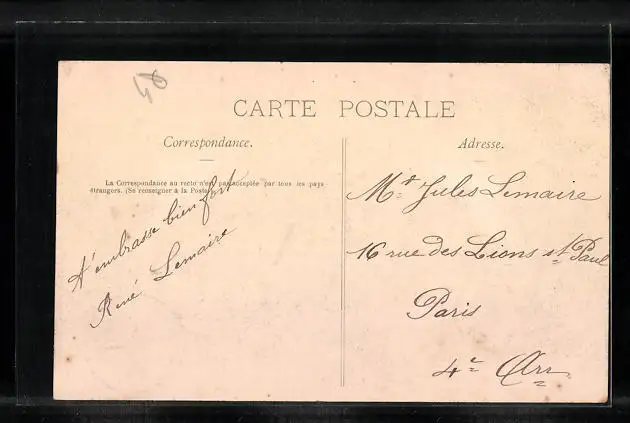 40
CARTE POSTALE
Correspondance.
La Correspondance au recto n'est pas acceptée par tous les pays
étrangers. (Se renseigner à la Poste)
t'embrasse bien fort
René Lemaire
Adresse.
Mr Jules Lemaire
16 rue des Lions st Paul
Paris
4e Arr